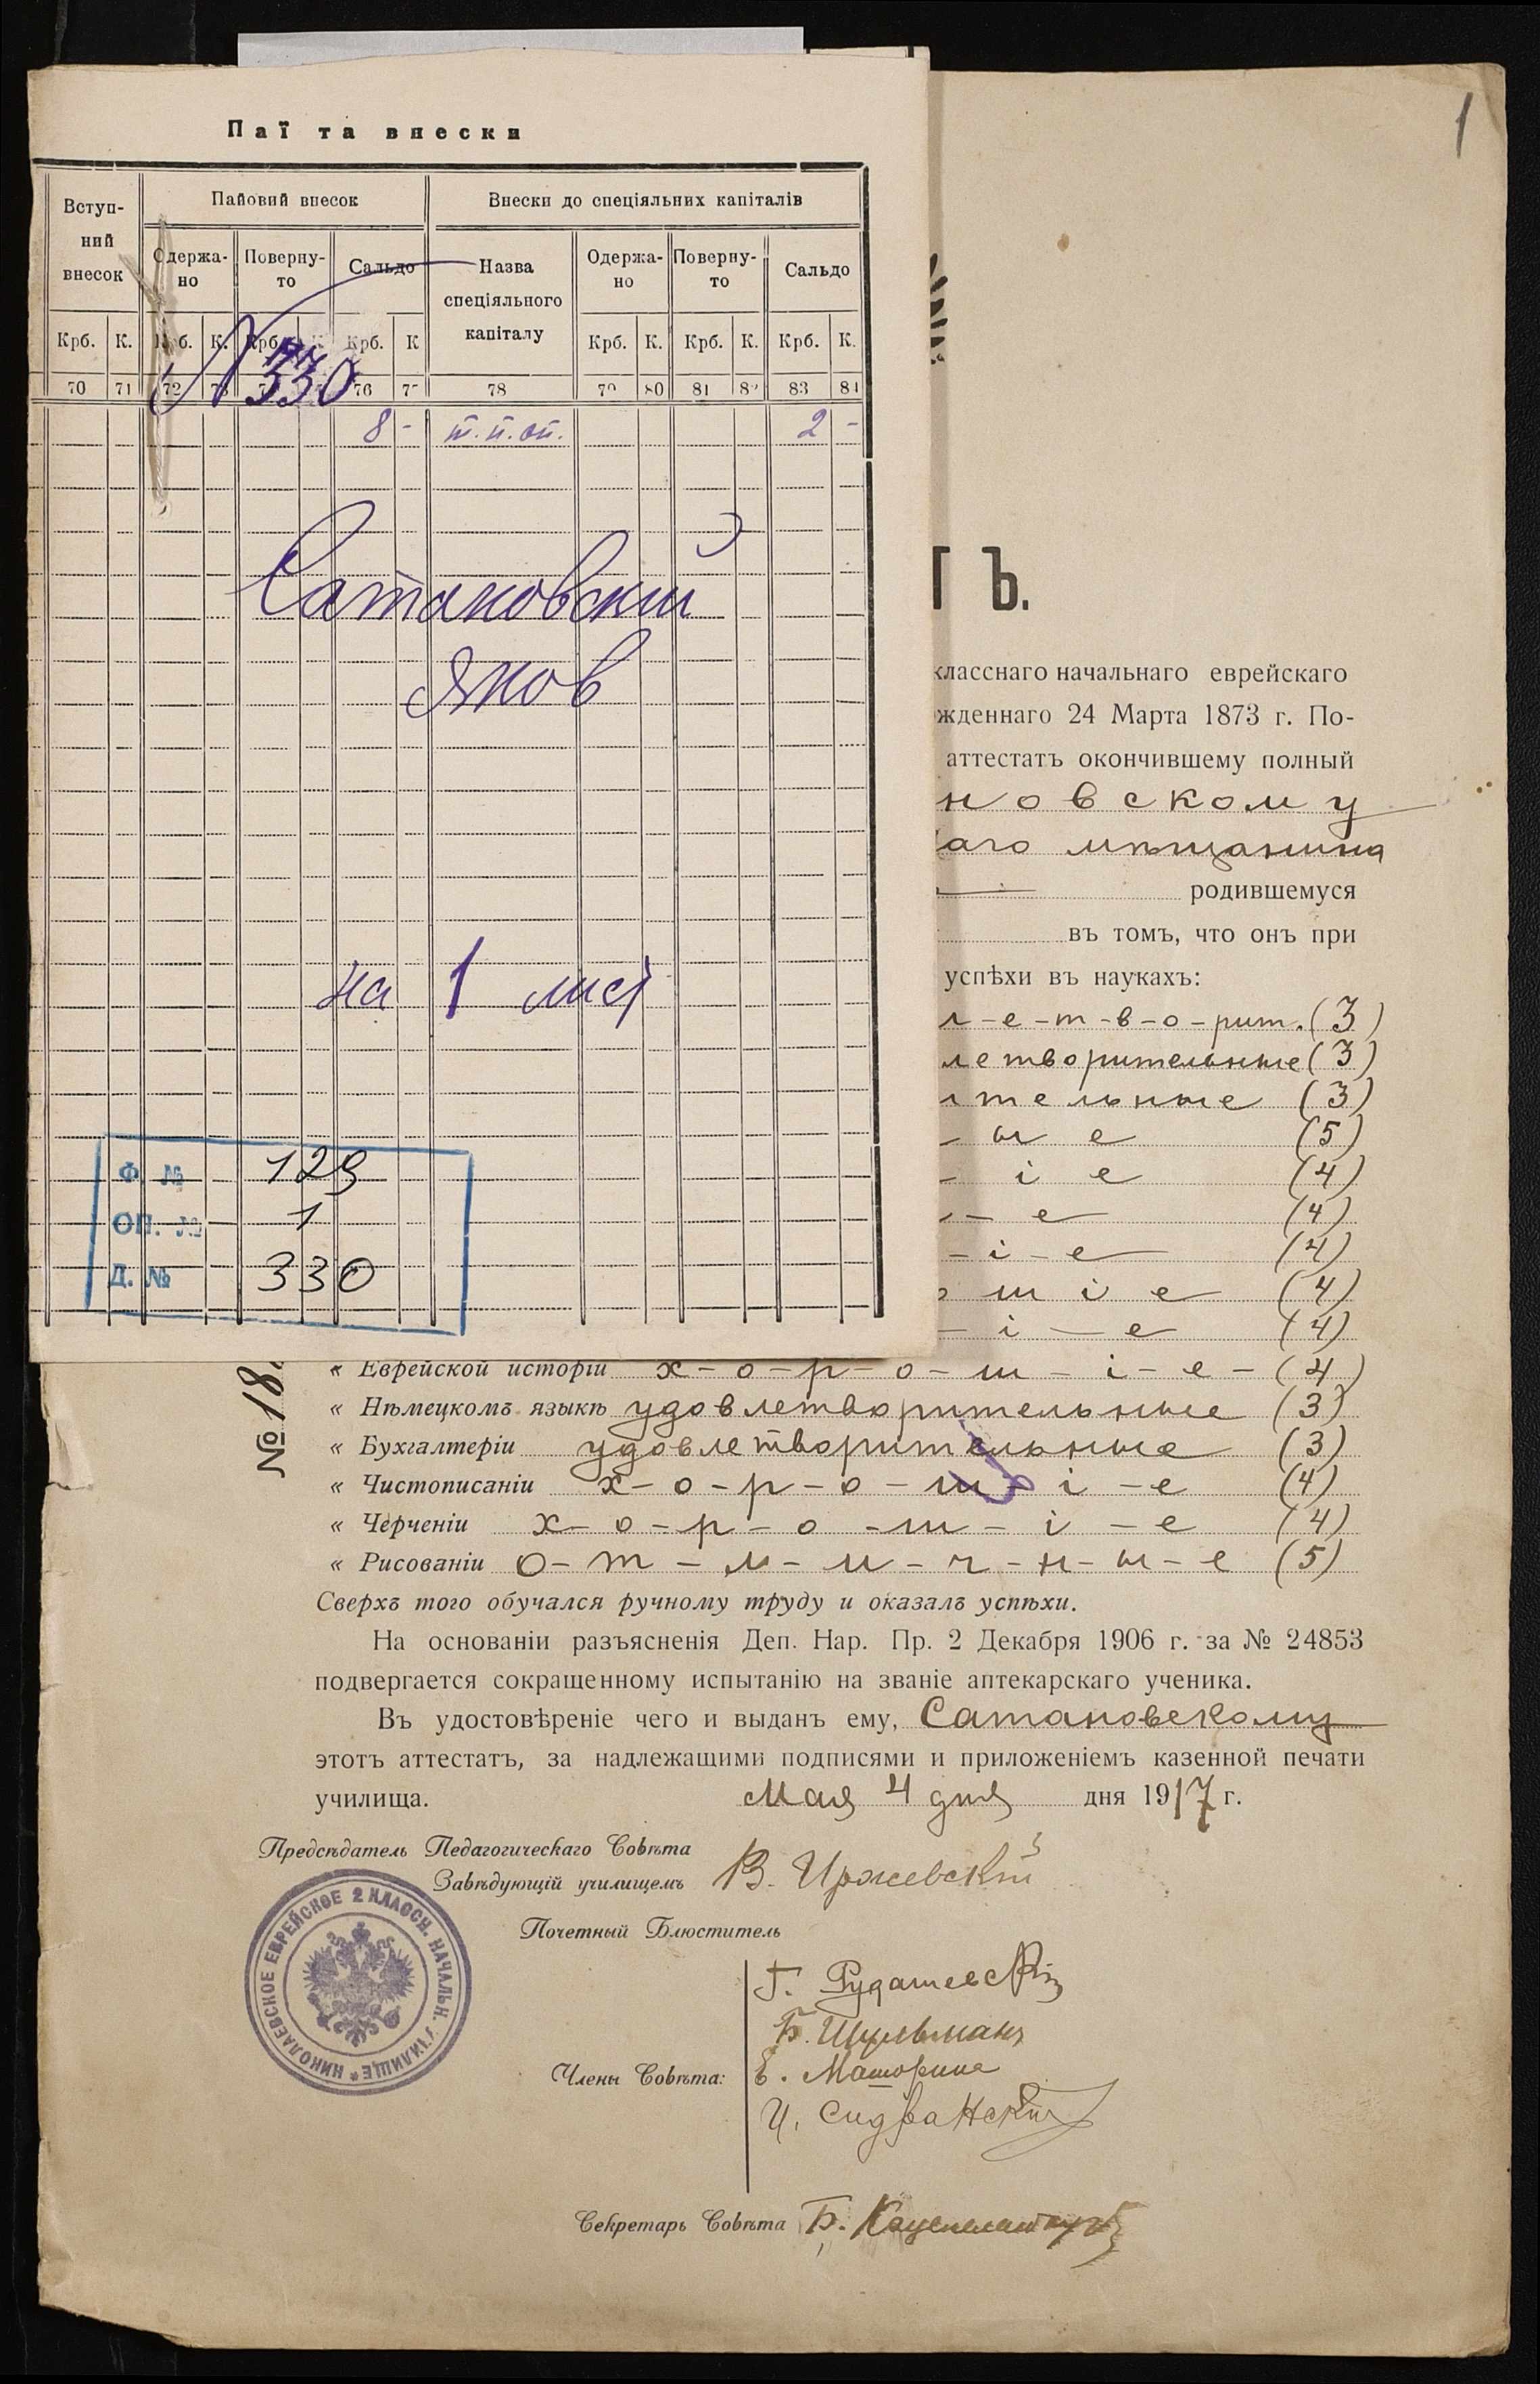 Паї та внески
Вступ-
ний
внесок
Пайовий внесок
Внески до спеціяльних капіталів
Одержа-
но
Поверну-
то
Сальдо
Назва
спеціяльного
капіталу
Одержа-
но
Поверну-
то
Сальдо
Крб. К. Крб. К. Крб. К Крб. К Крб. К. Крб. К. Крб. К.
70 71 72 73 76 77 78 79 80 81 82 83 84
N 330
8 - т.п.оп. 2 -
Сатановский
Яков
на 1 лист
Ф. № 129
ОП. № 1
Д. № 330
1
ТЪ.
класснаго начальнаго еврейскаго
жденнаго 24 Марта 1873 г. По-
аттестатъ окончившему полный
новскому
аго мѣщанина
родившемуся
въ томъ, что онъ при
успѣхи въ наукахъ:
л-е-т-в-о-рит. (3)
летворительные (3)
ительные (3)
- ы е (5)
- і е (4)
- е (4)
- і - е (4)
о ш і е (4)
- і - е (4)
№ 18
« Еврейской исторіи х-о-р-о-ш-і-е- (4)
« Нѣмецкомъ языкѣ удовлетворительные (3)
« Бухгалтеріи удовлетворительные (3)
« Чистописаніи х-о-р-о-ш-і-е (4)
« Черченіи х-о-р-о-ш-і-е (4)
« Рисованіи о-т-л-и-ч-н-ы-е (5)
Сверхъ того обучался ручному труду и оказалъ успѣхи.
На основаніи разъясненія Деп. Нар. Пр. 2 Декабря 1906 г. за № 24853
подвергается сокращенному испытанію на званіе аптекарскаго ученика.
Въ удостовѣреніе чего и выданъ ему, Сатановскому
этотъ аттестатъ, за надлежащими подписями и приложеніемъ казенной печати
училища. Мая 4 дня дня 1917 г.
Предсѣдатель Педагогическаго Совѣта
Завѣдующій училищемъ В. Иржевскій
Почетный Блюститель
НИКОЛАЕВСКОЕ ЕВРЕЙСКОЕ 2 КЛАССН. НАЧАЛЬН. УЧИЛИЩЕ *
Г. Рудашевскій
Б. Шульманъ
Члены Совѣта: Е. Маторина
Секретарь Совѣта Б.